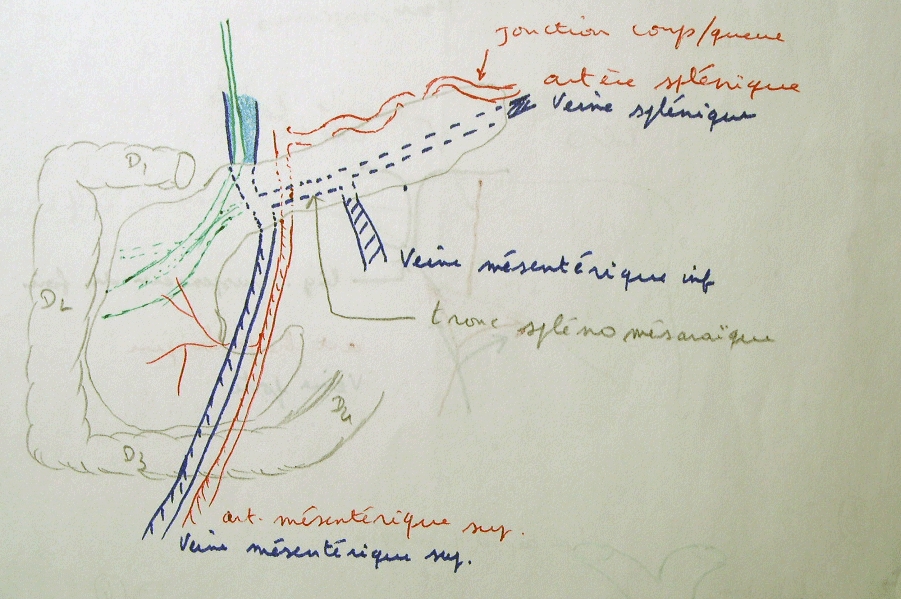 Jonction corps/queue
artère splénique
Veine splénique
D1
Veine mésentérique inf
D2
tronc spléno mésaraïque
D4
D3
art. mésentérique sup.
Veine mésentérique sup.